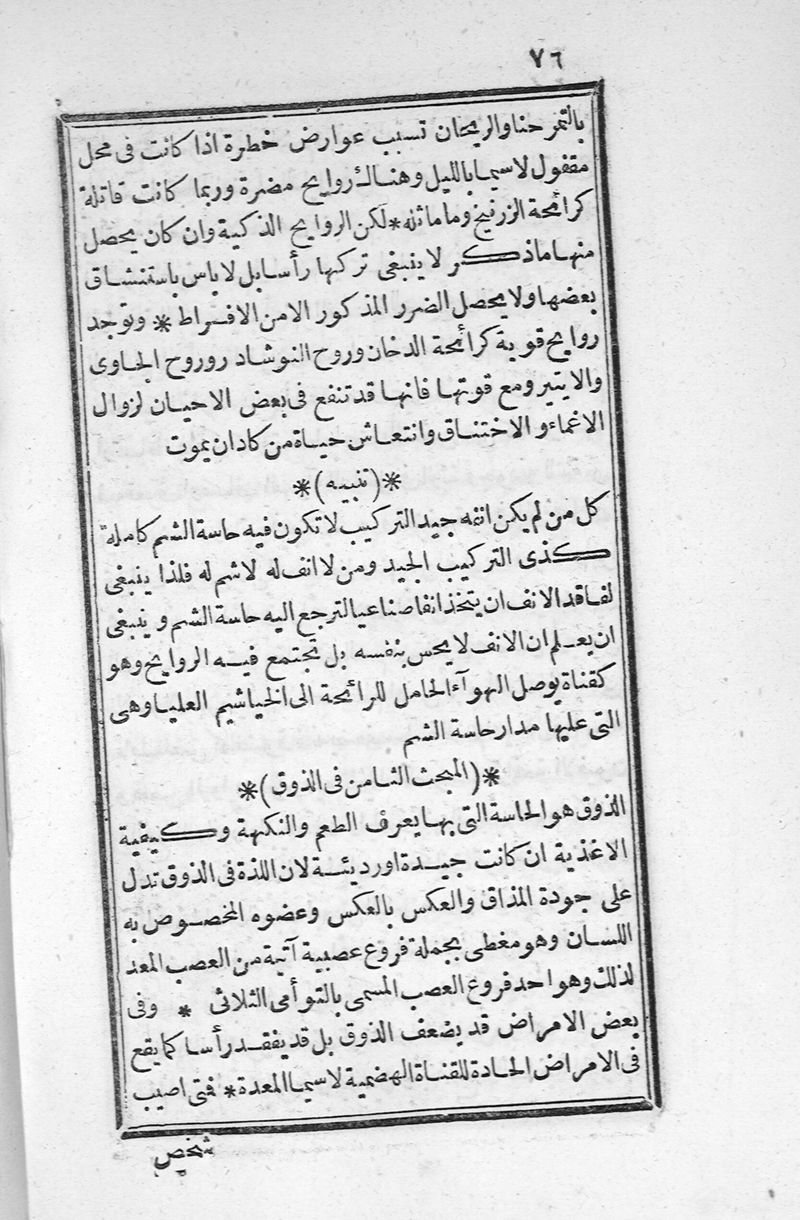 ٧٦
بالتمر حنا والريحان تسبب عوارض خطرة اذا كانت فى محل
مقفول لاسيما بالليل وهناك روايح مضرة وربما كانت قاتلة
كرائحة الزرنيخ وما ماثله * لكن الروايح الذكية وان كان يحصل
منها ماذكر لا ينبغى تركها رأسا بل لا باس باستنشاق
بعضها ولا يحصل الضرر المذكور الا من الافراط * وتوجد
روايح قوية كرائحة الدخان وروح النوشادر وروح الجاوى
والايتير ومع قوتها فانها قد تنفع فى بعض الاحيان لزوال
الاغماء والاختناق وانتعاش حياة من كاد ان يموت
*(تنبيه)*
كل من لم يكن انفه جيد التركيب لا تكون فيه حاسة الشم كاملة
كذى التركيب الجيد ومن لا انف له لا شم له فلذا ينبغى
لفاقد الانف ان يتخذ انفا صناعيا لترجع اليه حاسة الشم وينبغى
ان يعلم ان الانف لا يحس بنفسه بل تجتمع فيه الروايح وهو
كقناة يوصل الهوآء الحامل للرائحة الى الخياشيم العليا وهى
التى عليها مدار حاسة الشم
*(المبحث الثامن فى الذوق)*
الذوق هو الحاسة التى بها يعرف الطعم والنكهة وكيفية
الاغذية ان كانت جيدة اورديئة لان اللذة فى الذوق تدل
على جودة المذاق والعكس بالعكس وعضوه المخصوص به
اللسان وهو مغطى بجملة فروع عصبية آتية من العصب المعد
لذلك وهو احد فروع العصب المسمى بالتوأمى الثلاثى * وفى
بعض الامراض قد يضعف الذوق بل قد يفقد رأسا كما يقع
فى الامراض الحادة للقناة الهضمية لاسيما المعدة * فمتى اصيب
شخص